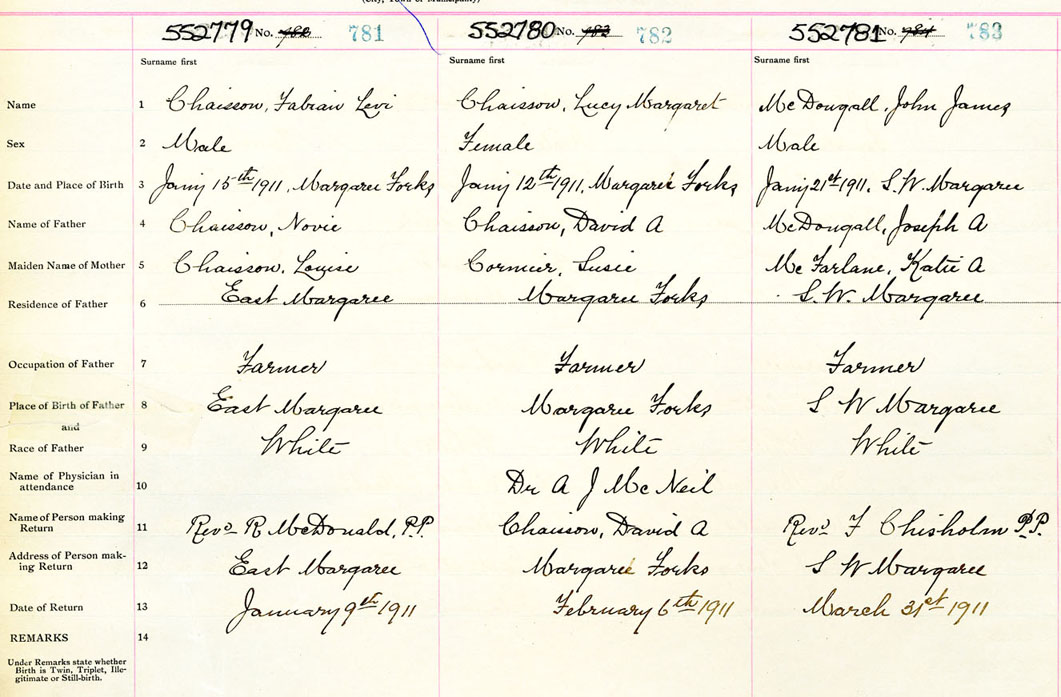 (City, Town or Municipality)
552779 No. 781 552780 No. 782 552781 No. 783
Surname first Surname first Surname first
Name 1 Chaisson, Fabian Levi Chaisson, Lucy Margaret McDougall, John James
Sex 2 Male Female Male
Date and Place of Birth 3 Jany 15th 1911, Margaree Forks Jany 12th 1911, Margaree Forks Jany 21st 1911, S. W. Margaree
Name of Father 4 Chaisson, Novie Chaisson, David A McDougall, Joseph A
Maiden Name of Mother 5 Chaisson, Louise Cormier, Susie McFarlane, Katie A
Residence of Father 6 East Margaree Margaree Forks S. W. Margaree
Occupation of Father 7 Farmer Farmer Farmer
Place of Birth of Father 8 East Margaree Margaree Forks S W Margaree
and
Race of Father 9 White White White
Name of Physician in
attendance 10 Dr A J McNeil
Name of Person making
Return 11 Revd R McDonald, P.P. Chaisson, David A Revd F Chisholm P.P.
Address of Person mak-
ing Return 12 East Margaree Margaree Forks S W Margaree
Date of Return 13 January 9th 1911 February 6th 1911 March 31st 1911
REMARKS 14
Under Remarks state whether
Birth is Twin, Triplet, Ille-
gitimate or Still-birth.